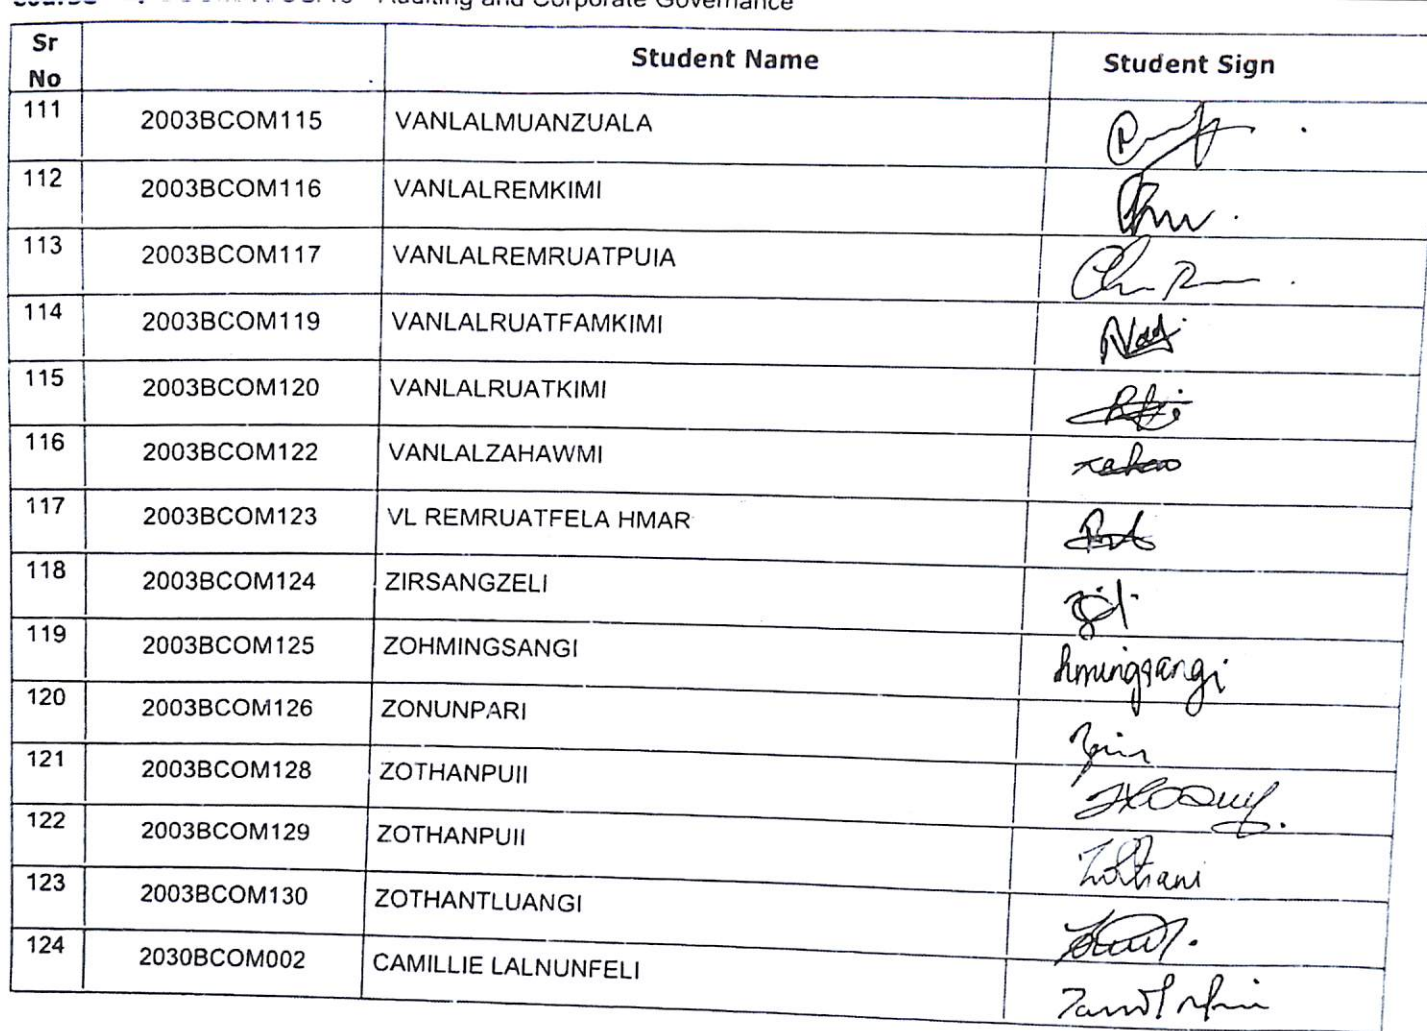 Auditing and Corporate Governance
Sr No Student Name Student Sign
111 2003BCOM115 VANLALMUANZUALA
112 2003BCOM116 VANLALREMKIMI
113 2003BCOM117 VANLALREMRUATPUIA
114 2003BCOM119 VANLALRUATFAMKIMI
115 2003BCOM120 VANLALRUATKIMI
116 2003BCOM122 VANLALZAHAWMI
117 2003BCOM123 VL REMRUATFELA HMAR
118 2003BCOM124 ZIRSANGZELI
119 2003BCOM125 ZOHMINGSANGI hmingsangi
120 2003BCOM126 ZONUNPARI
121 2003BCOM128 ZOTHANPUII
122 2003BCOM129 ZOTHANPUII Zothani
123 2003BCOM130 ZOTHANTLUANGI
124 2030BCOM002 CAMILLIE LALNUNFELI